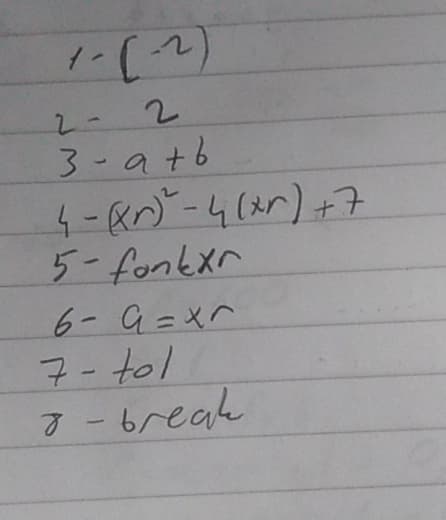 1-(-2)
2- 2
3-a+b
4-(xr)²-4(xr)+7
5-fonkxr
6- a=xr
7-tol
8-break